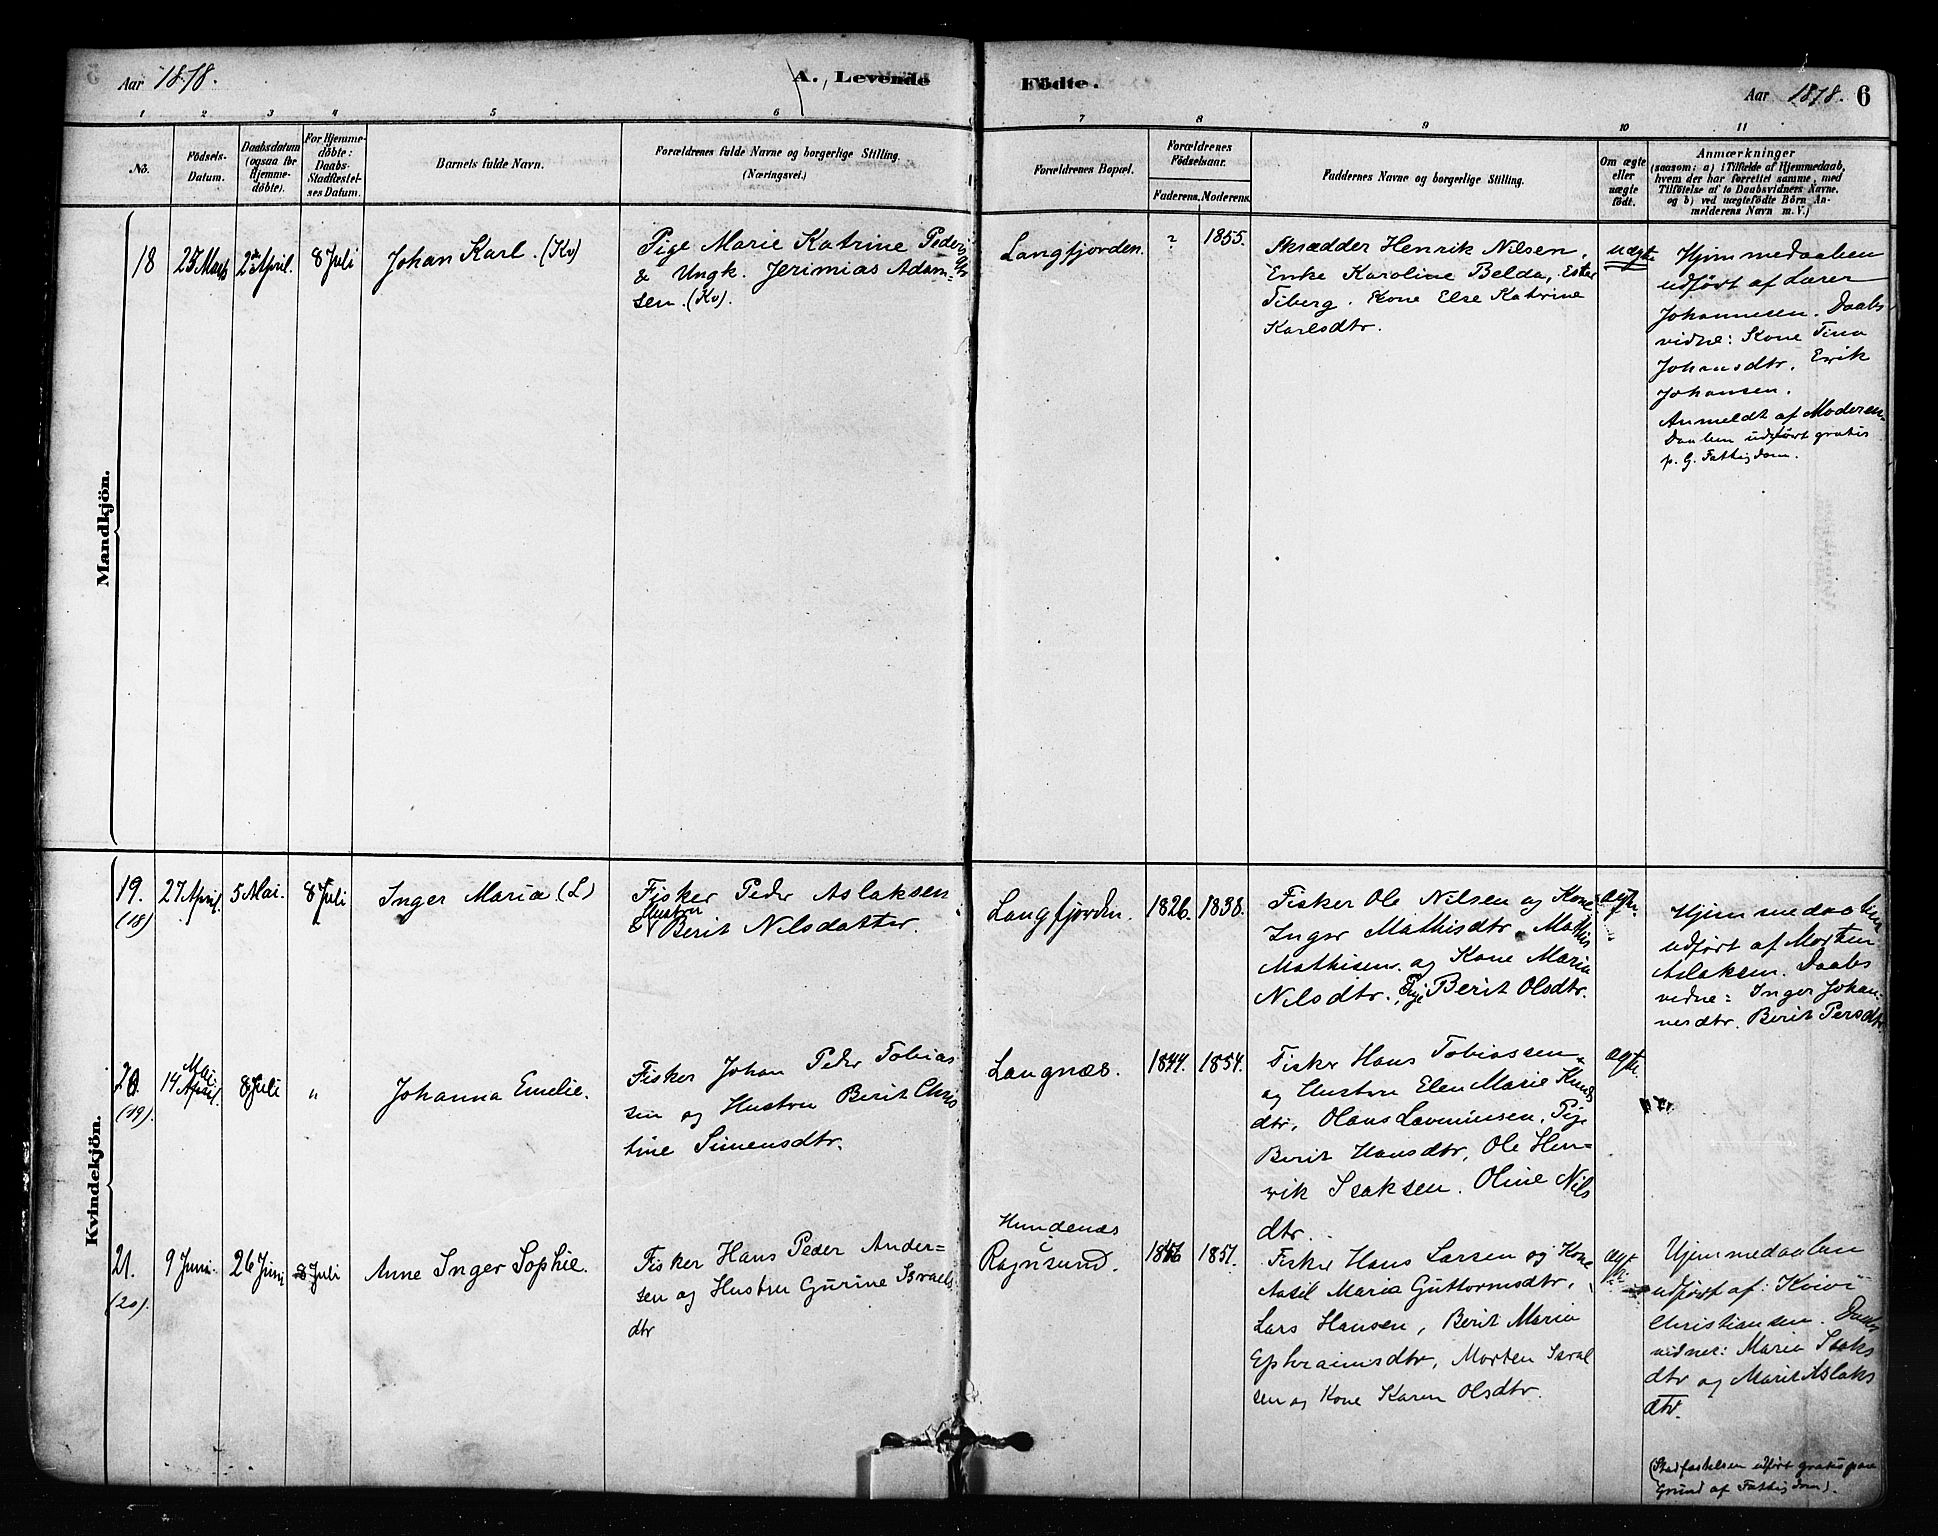 Aar 1878.
A. Levende
Födte.
Aar 1878. 6
1 2 3 4 5 6 7 8 9 10 11
No.
Födsels-
Datum.
Daabsdatum
(ogsaa for
Hjemme-
döbte).
For Hjemme-
döbte:
Daabs-
Stadfæstel-
ses Datum.
Barnets fulde Navn.
Forældrenes fulde Navne og borgerlige Stilling.
(Næringsvei.)
Forældrenes Bopæl.
Forældrenes
Födselsaar.
Faderens. Moderens.
Faddernes Navne og borgerlige Stilling.
Om ægte
eller
uægte
født.
Anmærkninger
(saasom: a) i Tilfælde af Hjemmedaab,
hvem der har forrettet samme, med
Tilföielse af to Daabsvidners Navne.
og b) ved uægtefödte Börn An-
melderens Navn m. V.)
Mandkjön.
18
25 Marts
2den April.
8 Juli
Johan Karl. (Kv)
Pige Marie Katrine Peders
dtr
& Ungk. Jerimias Adam-
sen. (Kv).
Langfjorden.
?
1855.
Skrædder Henrik Nilsen,
Enke Karoline Belda, Ester
Tiberg. Kone Else Katrine
Karlsdtr.
uægte
Hjemmedaaben
udført af Lærer
Johannesen. Daabs
vidne: Kone Tina
Johansdtr. Erik
Johansen.
Anmeldt af Moderen
Daaben udført gratis
p. G. Fattigdom.
Kvindekjön.
19.
(18)
27 April.
5 Mai.
8 Juli
Inger Maria (L)
Fisker Peder Aslaksen
& Hustru
Berit Nilsdatter.
Langfjorden.
1826.
1838.
Fisker Ole Nilsen og Kone
Inger Mathisdtr. Mathis
Mathisen og Kone Maria
Nilsdtr., Pige Berit Olsdtr.
ægte.
Hjemmedaaben
udført af Morten
Aslaksen. Daabs
vidne: Inger Johan-
nesdtr. Berit Persdtr
20.
(19).
Mai
14 April.
8 Juli
"
Johanna Emelie.
Fisker Johan Peder Tobias
sen og Hustru Berit Chris
tine Simensdtr.
Langnæs.
1844.
1854.
Fisker Hans Tobiassen
og Hustru Elen Marie Knuds
dtr, Olaus Lavminsen, Pige
Berit Hansdtr, Ole Hen-
rik Isaksen. Oline Nils
dtr.
ægte.
21.
(20).
9 Juni.
26 Juni
8 Juli
Anne Inger Sophie.
Fisker Hans Peder Ander=
sen og Hustru Gurine Israels
dtr
Hundenæs
i
Rognsund.
1851.
Fisker Hans Larsen og Kone
Aasil Maria Guttormsdtr,
Lars Hansen, Berit Maria
Ephraimsdtr, Morten Israel
sen og Kone Karen Olsdtr.
ægte
Hjemmedaaben
udført af: Kvivi
Christiansen. Daabs
vidner: Maria Isaks
dtr og Marit Aslaks
dtr.
(Stadfæstelsen udført gratis paa
Grund af Fattigdom).